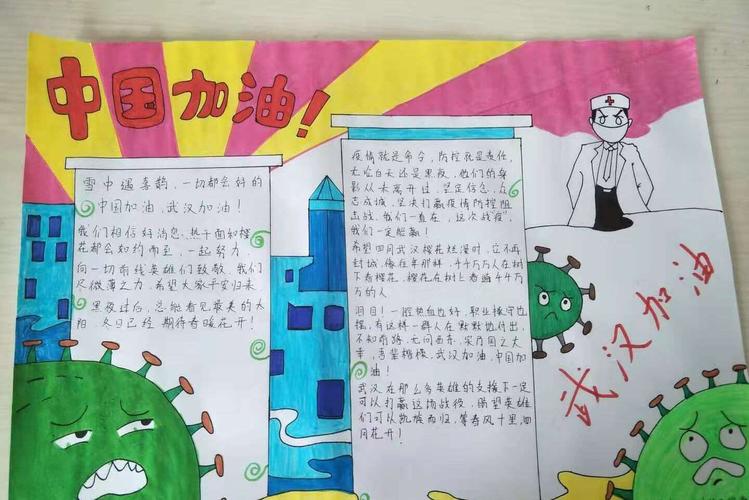 中国加油!
雪中遇喜鹊,一切都会好的
中国加油,武汉加油!
我们相信好消息,热干面和樱
花都会如约而至,一起努力
向一切前线英雄们致敬,我们
尽微薄之力,希望大家平安归来
黑夜过后,总能看见最美的太
阳,冬日已经,期待春暖花开!
疫情就是命令,防控就是责任,
无论白天还是黑夜,他们的身
影从未离开过,坚定信念,众
志成城,坚决打赢疫情防控阻
击战,我们一直在,这次战"疫",
我们一定能赢!
希望四月武汉樱花烂漫时,立不再
封城,像往年那样,44万万人在树
下看樱花,樱花在树上看遍44万万
的人
泪目!一腔热血也好,职业操守也
罢,有这样一群人在默默地付出,
不知前路,无问西东,实乃国之大
幸,吾辈楷模,武汉加油,中国加
油!
武汉在那么多英雄的支援下一定
可以打赢这场战役,盼望英雄
们可以凯旋而归,等春风十里,四
月花开!
武汉加油